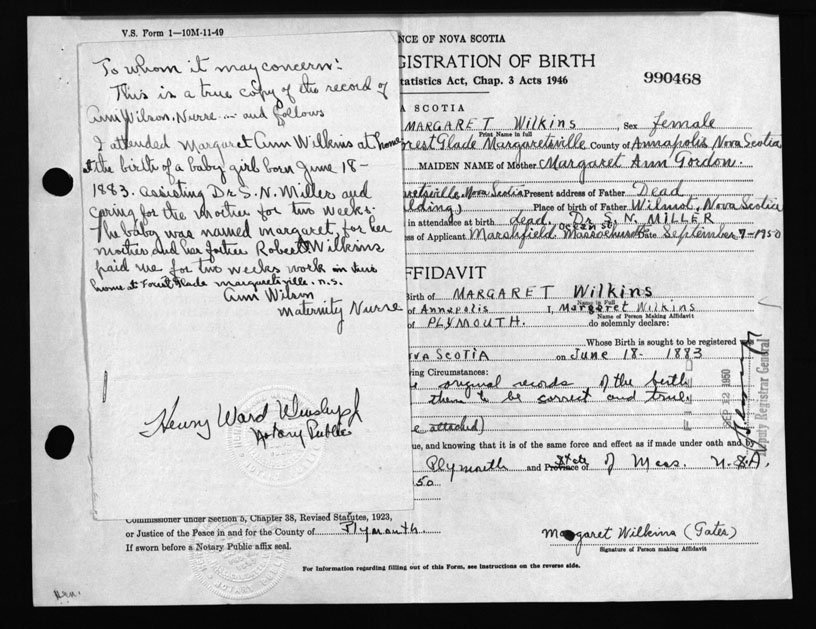 V.S. Form 1—10M-11-49
To whom it may concern:
This is a true copy of the record of
Ann Wilson. Nurse and follows
I attended Margaret Ann Wilkins at home
at the birth of a baby girl born June 18-
1883. assisting Dr S. N. Miller and
caring for the mother for two weeks.
The baby was named margaret for her
mother and her father Robert Wilkins
paid me for two weeks work in their
home at Forest Glade margaretsville. n.s.
Ann Wilson
maternity Nurse
Henry Ward
Notary Public
NCE OF NOVA SCOTIA
GISTRATION OF BIRTH
tatistics Act, Chap. 3 Acts 1946
990468
A SCOTIA
MARGARET Wilkins Sex female
Print Name in full
rest Glade Margaretsville County of Annapolis Nova Scotia
MAIDEN NAME of Mother Margaret Ann Gordon.
Nova Scotia Present address of Father Dead
Place of birth of Father Wilmot, Nova Scotia
in attendance at birth dead. Dr S. N. MILLER
Ocean St.
ss of Applicant Marshfield Massachusetts Date September 7-1950
FFIDAVIT
Birth of MARGARET Wilkins
Name in Full
of Annapolis I, Margaret Wilkins
Name of Person Making Affidavit
of PLYMOUTH. do solemnly declare:
Whose Birth is sought to be registered
OVA SCOTIA on June 18- 1883
ing Circumstances:
original records of the birth
them to be correct and true
attached)
ue, and knowing that it is of the same force and effect as if made under oath and by
Plymouth and Province State of Mass. U.S.A.
50
SEP 12 1950
Deputy Registrar General
Commissioner under Section 5, Chapter 38, Revised Statutes, 1923,
or Justice of the Peace in and for the County of Plymouth
If sworn before a Notary Public affix seal.
Margaret Wilkins (Gates)
Signature of Person making Affidavit
For Information regarding filling out of this Form, see Instructions on the reverse side.